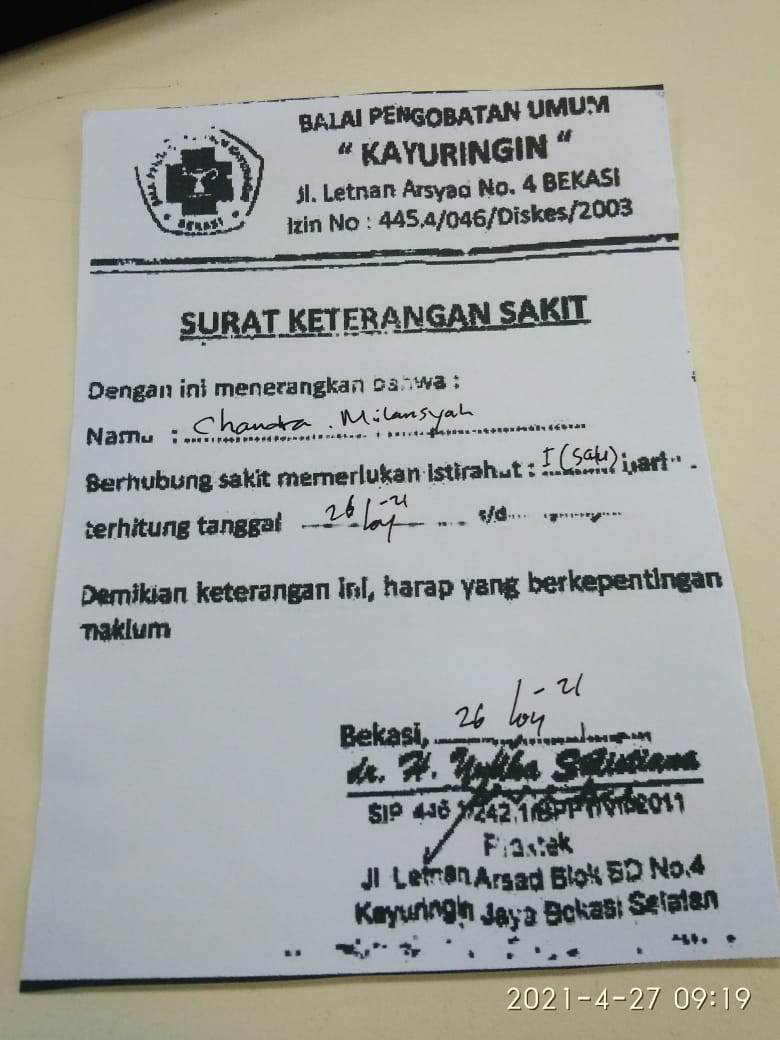 BALAI PENGOBATAN UMUM
“ KAYURINGIN “
Jl. Letnan Arsyad No. 4 BEKASI
Izin No : 445.4/046/Diskes/2003
BEKASI
SURAT KETERANGAN SAKIT
Dengan ini menerangkan bahwa :
Nama : Chandra . Milansyah
Berhubung sakit memerlukan istirahat : I (satu) hari
terhitung tanggal 26/04-21 s/d
Demikian keterangan ini, harap yang berkepentingan
maklum
Bekasi, 26/04-21
dr. H.
SIP
Praktek
Jl Letnan Arsad Blok BD No.4
Kayuringin Jaya Bekasi Selatan
2021-4-27 09:19